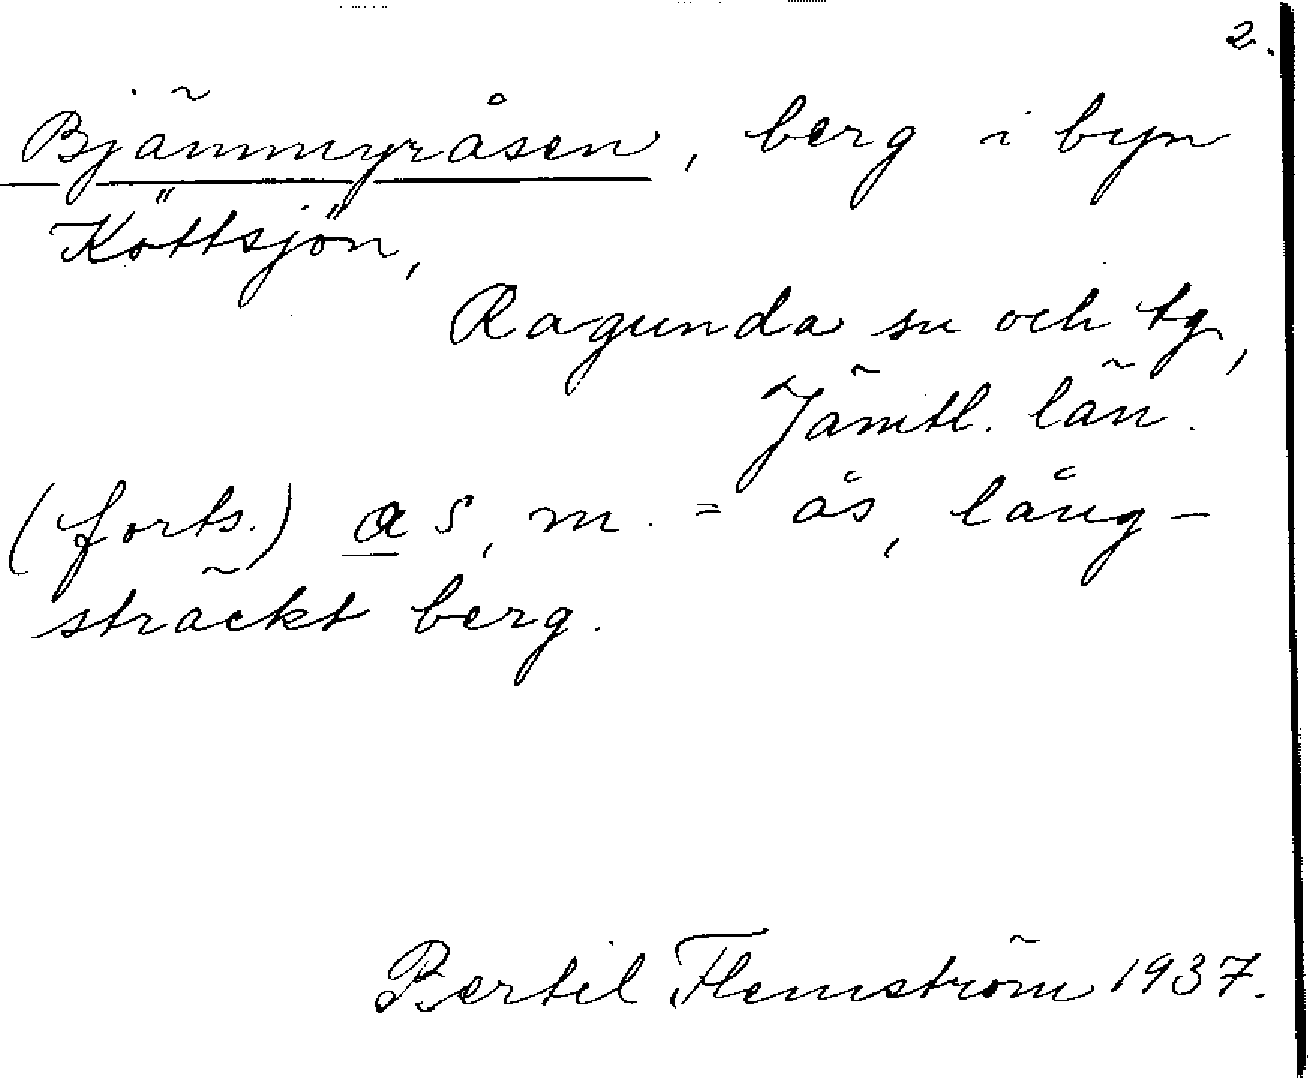 2.
Bjämmyråsen, berg i byn
Köttsjön,
Ragunda sn och tg,
Jämtl. län.
(forts.) as, m. = ås, lång-
sträckt berg.
Bertil Flemström 1937.